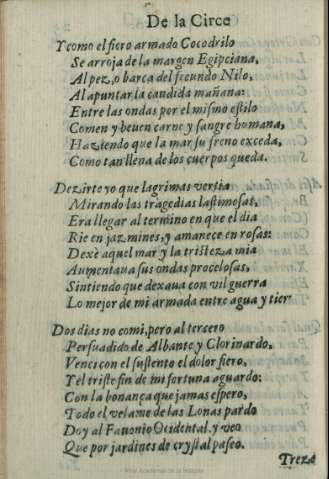 De la Circe
Y como el fiero armado Cocodrilo
Se arroja de la margen Egipciana,
Al pez, o barca del fecundo Nilo,
Al apuntar la candida mañana:
Entre las ondas por el mismo estilo
Comen y beuen carne y sangre humana,
Haziendo que la mar su freno exceda,
Como tan llena de los cuerpos queda.
Dezirte yo que lagrimas vertia
Mirando las tragedias lastimosas,
Era llegar al termino en que el dia
Rie en jazmines, y amanece en rosas:
Dexè aquel mar y la tristeza mia
Aumentaua sus ondas procelosas,
Sintiendo que dexaua con vil guerra
Lo mejor de mi armada entre agua y tier
Dos dias no comi, pero al tercero
Persuadido de Albante y Clorinardo,
Venci con el sustento el dolor fiero,
Y el triste fin de mi fortuna aguardo:
Con la bonança que jamas espero,
Todo el velame de las Lonas pardo
Doy al Fauonio Ocidental, y veo
Que por jardines de crystal paseo.
Treze
Real Academia de la Historia